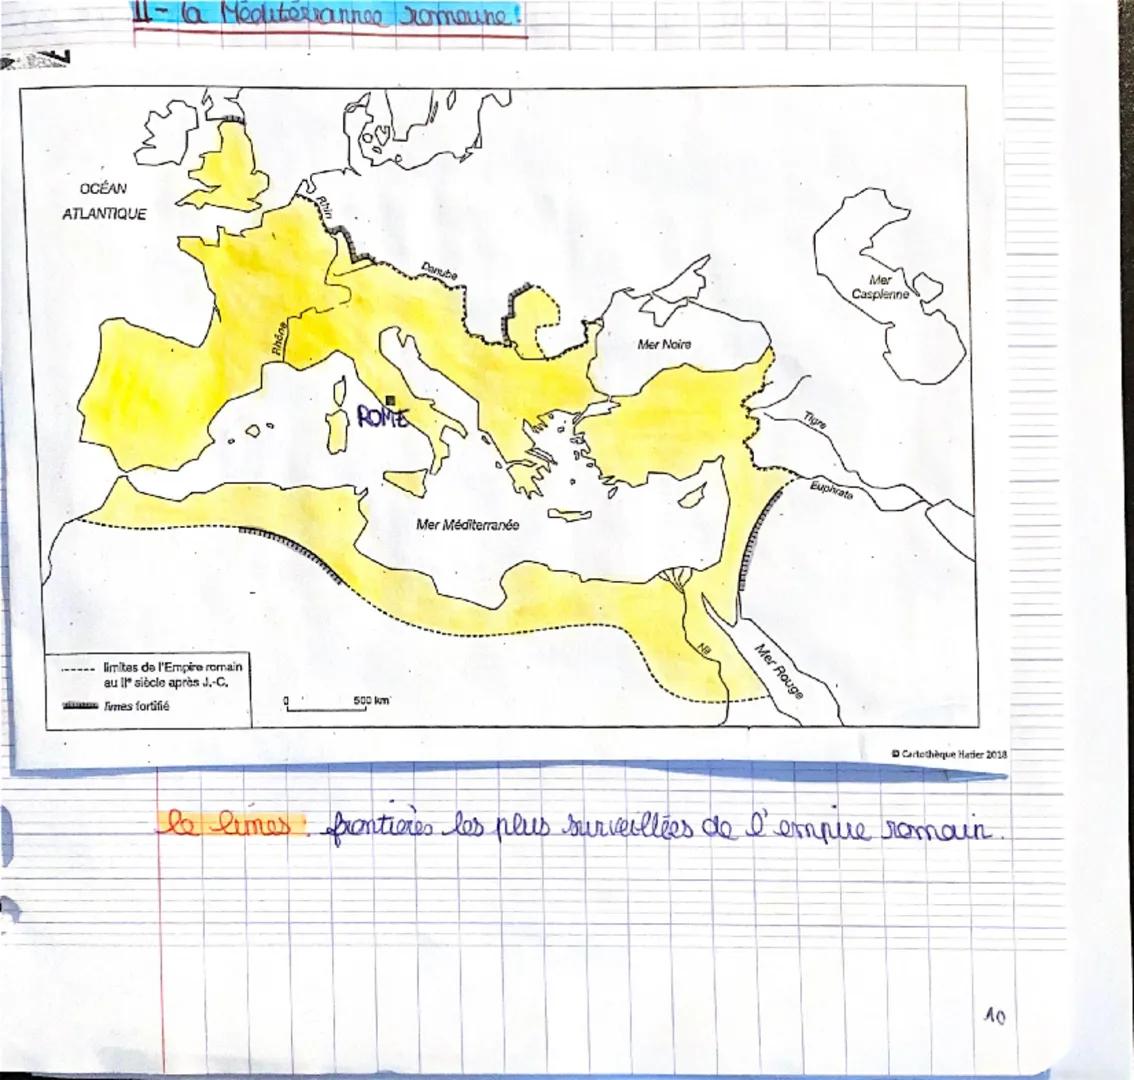 II - la Méditerrannée romaine :
OCÉAN
ATLANTIQUE
Rhin
Danube
Mer
Caspienne
Mer Noire
Rhône
ROME
Tigre
Euphrate
Mer Méditerranée
Nil
Mer Rouge
limites de l'Empire romain
au IIe siècle après J.-C.
limes fortifié
0 500 km
© Cartothèque Hatier 2018
le limes : frontières les plus surveillées de l'empire romain.
10